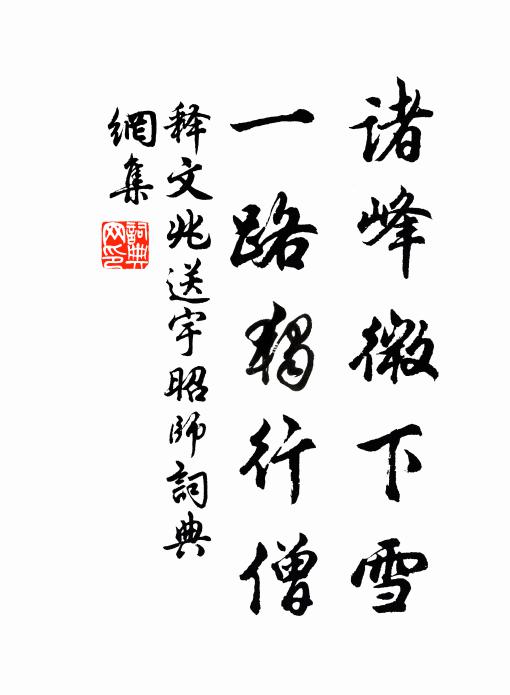 诸峰微下雪
一路独行僧
释文兆送宇昭師詞典
網集
詞典
网印